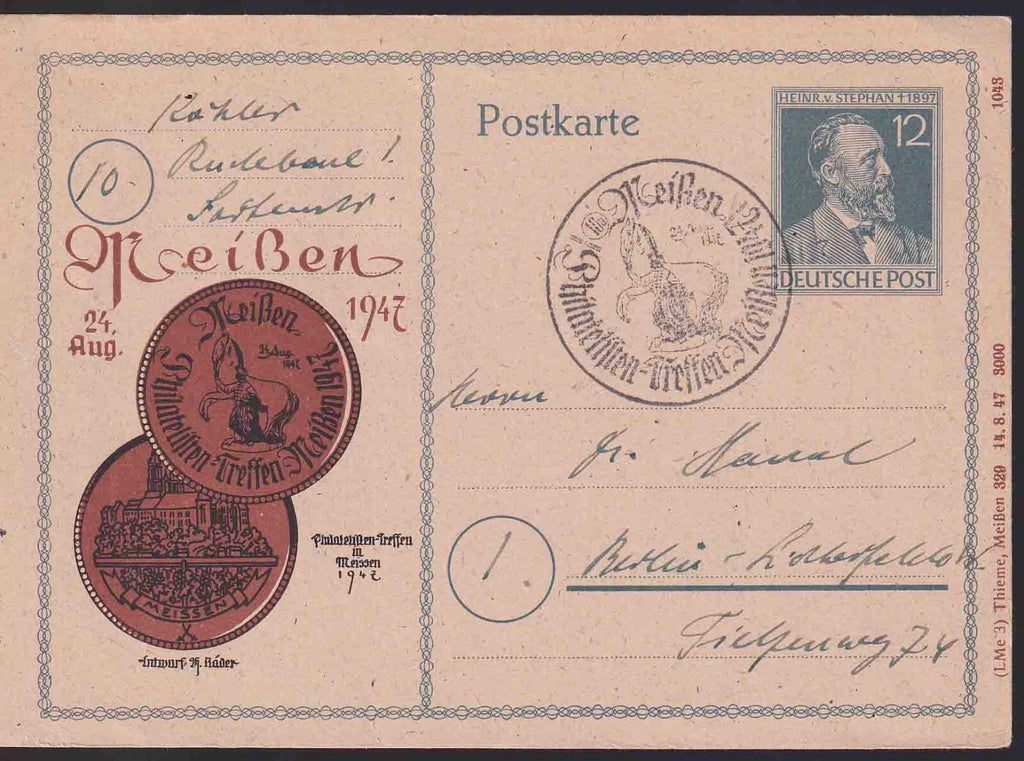 Köhler
10
Radebeul 1.
Meißen
24. Aug.
1947
Meißen
24. Aug. 1947
Philatelisten-Treffen Meißen 1947
MEISSEN
Philatelisten-Treffen
in
Meissen
1947
Entwurf: H. Räder
Postkarte
HEINR. v. STEPHAN † 1897
12
DEUTSCHE POST
Meißen
Philatelisten-Treffen Meißen 1947
Herrn
Dr.
1
Berlin - Lichterfelde W
74
(LMe 3) Thieme, Meißen 329 14. 8. 47 3000
1043